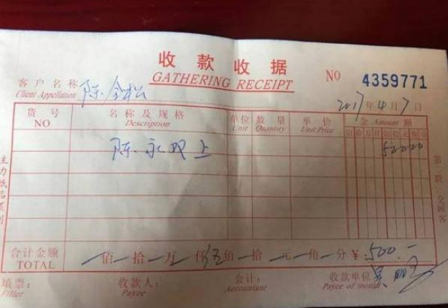 收款收据
GATHERING RECEIPT
NO 4359771
客户名称 陈金松
Client Appellation
2017年4月7日
货号 名称及规格 单位 数量 单价 金 Amount 额
NO Description Unit Quantity Unit Price
陈永双上 50000
合计金额 佰 拾 万 仟 伍佰 拾 元 角 分 ¥:500.—
TOTAL
填票: 收款人: 会计: 收款单位
Filler Payee Accountant Payee of money